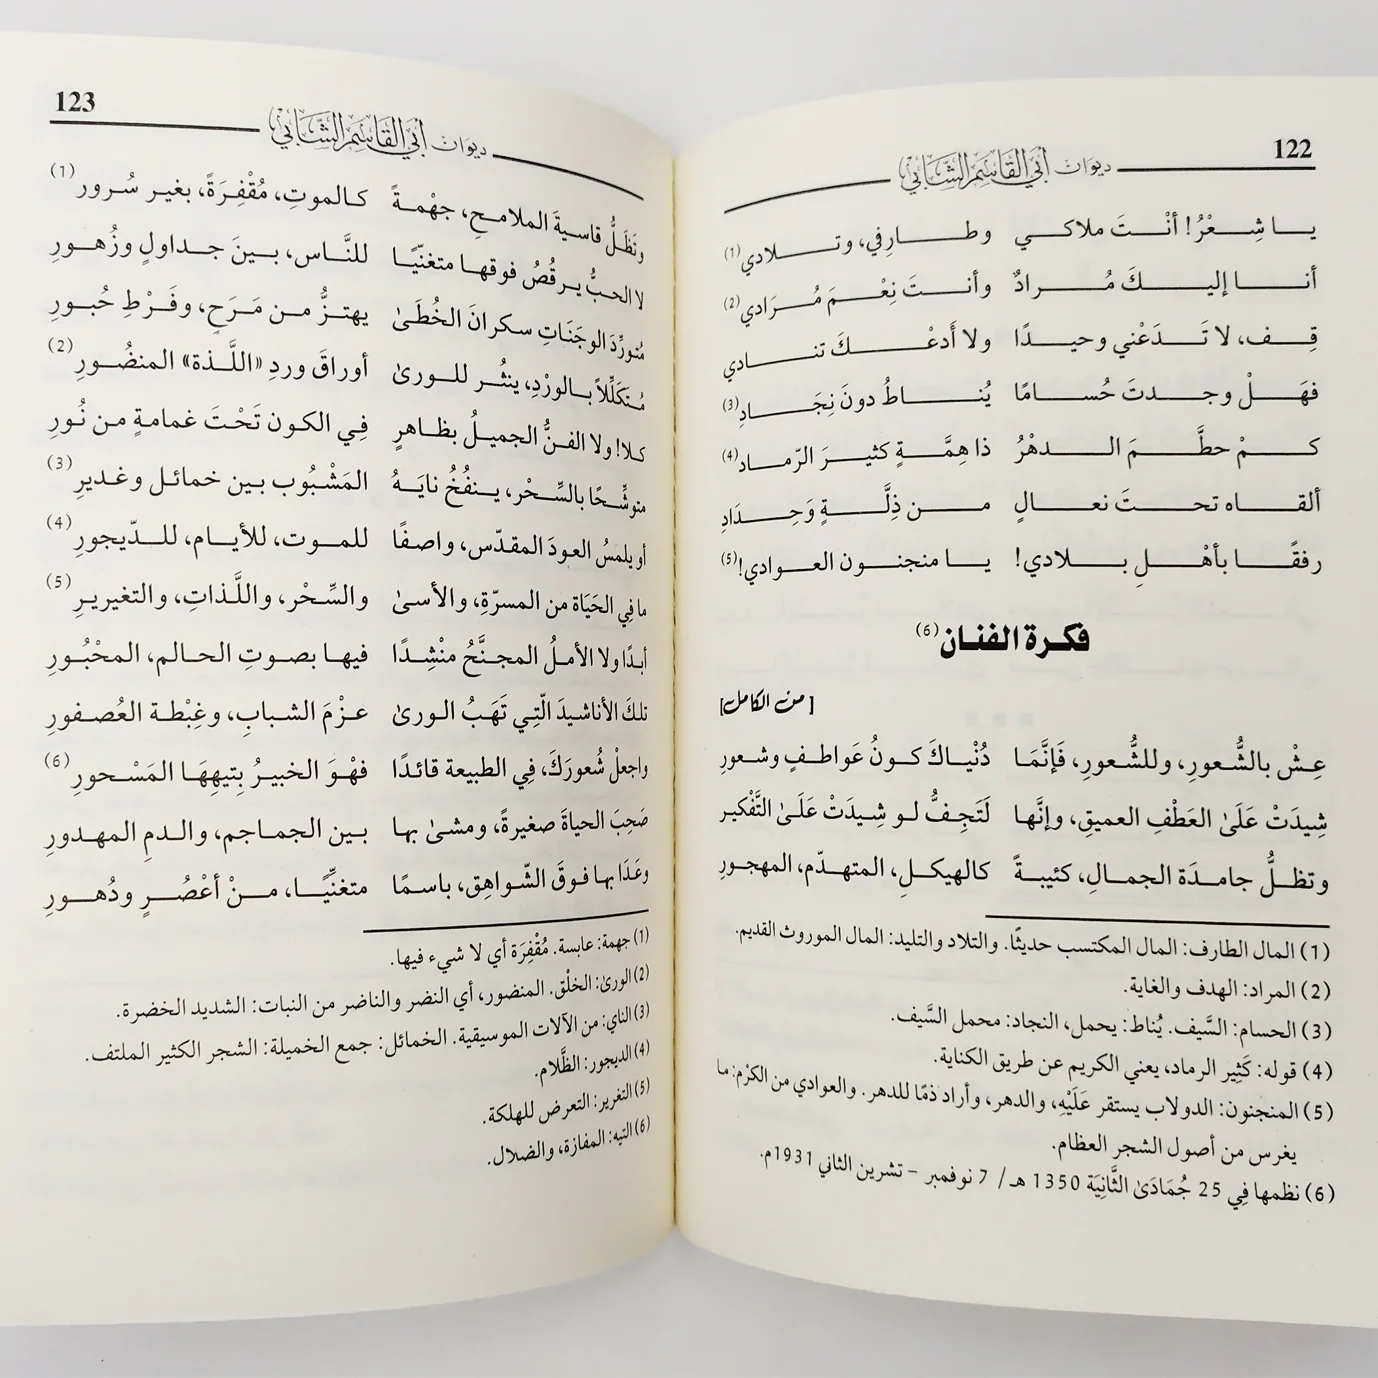 122
ديوان أبي القاسم الشابي
يا شِعْرُ! أنْتَ ملاكي وطارِفي، وتلادي(1)
أنا إليكَ مُرادٌ وأنتَ نِعْمَ مُرَادي(2)
قِف، لا تَدَعْني وحيدًا ولا أَدعْكَ تنادي
فهَلْ وجدتَ حُسامًا يُناطُ دونَ نِجَادِ(3)
كمْ حطَّمَ الدهْرُ ذا هِمَّةٍ كثيرَ الرّماد(4)
ألقاه تحتَ نعالٍ من ذِلَّةٍ وَحِدَادِ
رفقًا بأهْلِ بلادي! يا منجنون العوادي!(5)
فكرة الفنان(6)
[من الكامل]
عِشْ بالشُّعورِ، وللشُّعورِ، فَإنَّمَا دُنْياكَ كونُ عَواطفٍ وشعورِ
شِيدَتْ عَلَىٰ العَطْفِ العميقِ، وإنَّها لَتَجِفُّ لو شِيدَتْ عَلَىٰ التَّفْكير
وتظلُّ جامدَة الجمالِ، كئيبةً كالهيكلِ، المتهدّم، المهجورِ
(1) المال الطارف: المال المكتسب حديثًا. والتلاد والتليد: المال الموروث القديم.
(2) المراد: الهدف والغاية.
(3) الحسام: السَّيف. يُناط: يحمل، النجاد: محمل السَّيف.
(4) قوله: كَثِير الرماد، يعني الكريم عن طريق الكناية.
(5) المنجنون: الدولاب يستقر عَلَيْهِ، والدهر، وأراد ذمًا للدهر. والعوادي من الكرْم: ما
يغرس من أصول الشجر العظام.
(6) نظمها فِي 25 جُمَادَىٰ الثَّانِيَة 1350 هـ / 7 نوفمبر – تشرين الثاني 1931م.
123
ديوان أبي القاسم الشابي
وتَظَلُّ قاسيةَ الملامحِ، جهْمةً كالموتِ، مُقْفِرَةً، بغير سُرور(1)
لا الحبُّ يرقُصُ فوقها متغنّيًا للنَّاس، بينَ جداولٍ وزُهورِ
مُتورِّدَ الوجَنَاتِ سكرانَ الخُطَىٰ يهتزُّ من مَرَحٍ، وفَرْطِ حُبورِ
مُتكلِّلاً بالورْدِ، ينثُر للورىٰ أوراقَ وردِ «اللَّذة» المنضُورِ(2)
كلا! ولا الفنُّ الجميلُ بظاهرٍ فِي الكون تَحْتَ غمامةٍ من نُورِ
متوشِّحًا بالسِّحْر، ينفُخُ نايَهُ المَشْبُوب بين خمائل وغديرِ(3)
أو يلمسُ العودَ المقدّس، واصفًا للموت، للأيام، للدّيجورِ(4)
ما فِي الحَيَاة من المسرّةِ، والأسىٰ والسِّحْر، واللَّذاتِ، والتغريرِ(5)
أبدًا ولا الأملُ المجنَّحُ منْشِدًا فيها بصوتِ الحالم، المحْبُورِ
تلكَ الأناشيدَ الّتِي تَهَبُ الورىٰ عزْمَ الشبابِ، وغِبْطة العُصفورِ
واجعلْ شُعورَكَ، فِي الطبيعة قائدًا فهْوَ الخبيرُ بِتيهِهَا المَسْحورِ(6)
صَحِبَ الحياةَ صغيرةً، ومشىٰ بها بين الجماجم، والدمِ المهدورِ
وعَدَا بها فوقَ الشّواهِقِ، باسمًا متغنِّيًا، منْ أعْصُرٍ ودُهورِ
(1) جهمة: عابسة. مُقْفِرَة أي لا شيء فيها.
(2) الورىٰ: الخلْق. المنضور، أي النضر والناضر من النبات: الشديد الخضرة.
(3) الناي: من الآلات الموسيقية. الخمائل: جمع الخميلة: الشجر الكثير الملتف.
(4) الديجور: الظَّلام.
(5) التغرير: التعرض للهلكة.
(6) التيه: المفازة، والضلال.